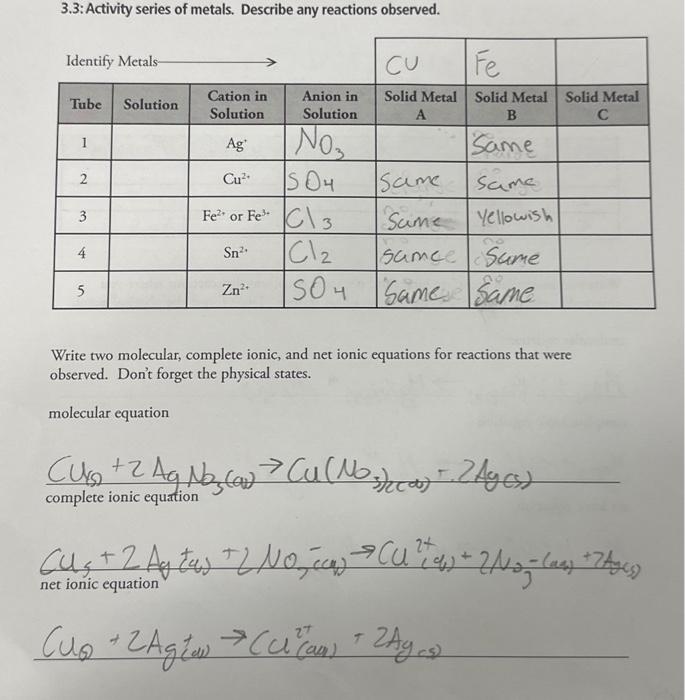 3.3: Activity series of metals. Describe any reactions observed.
Identify Metals → CU Fe
Tube Solution Cation in Solution Anion in Solution Solid Metal A Solid Metal B Solid Metal C
1 Ag⁺ NO₃ Same
2 Cu²⁺ SO4 same same
3 Fe²⁺ or Fe³⁺ Cl3 Same Yellowish
4 Sn²⁺ Cl2 same Same
5 Zn²⁺ SO4 Same Same
Write two molecular, complete ionic, and net ionic equations for reactions that were
observed. Don't forget the physical states.
molecular equation
Cu(s) + 2AgNO₃(aq) → Cu(NO₃)₂(aq) + 2Ag(s)
complete ionic equation
Cu s + 2Ag⁺(aq) + 2NO₃⁻(aq) → Cu²⁺(aq) + 2NO₃⁻(aq) + 2Ag(s)
net ionic equation
Cu(s) + 2Ag⁺(aq) → Cu²⁺(aq) + 2Ag(s)